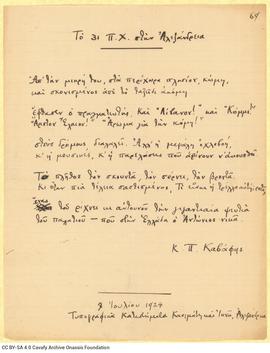 64
Το 31 π.Χ. στην Αλεξάνδρεια
Απ' την μικρή του, στα περίχωρα πλησίον, κώμη,
και σκονισμένος από το ταξείδι ακόμη
έφθασεν ο πραγματευτής. Και «Λίβανον!» και «Κόμμι!»
«Άριστον Έλαιον!» «Άρωμα για την κόμη!»
στους δρόμους διαλαλεί. Αλλ' η μεγάλη οχλοβοή,
κ' η μουσικές, κ' η παρελάσεις πού αφίνουν ν' ακουσθεί.
Το πλήθος τον σκουντά, τον σέρνει, τον βροντά.
Κι όταν πια τέλεια σαστισμένος, Τι είναι η τρέλλα αυτή; ρωτά,
ένας του ρίχνει κι αυτουνού την γιγαντιαία ψευτιά
του παλατιού — που στην Ελλάδα ο Αντώνιος νικά.
Κ. Π. Καβάφης
8 Ιουλίου 1924
Τυπογραφικά Καταστήματα Κασιμάτη και Ιωνά, Αλεξάνδρεια
CC BY-SA 4.0 Cavafy Archive Onassis Foundation